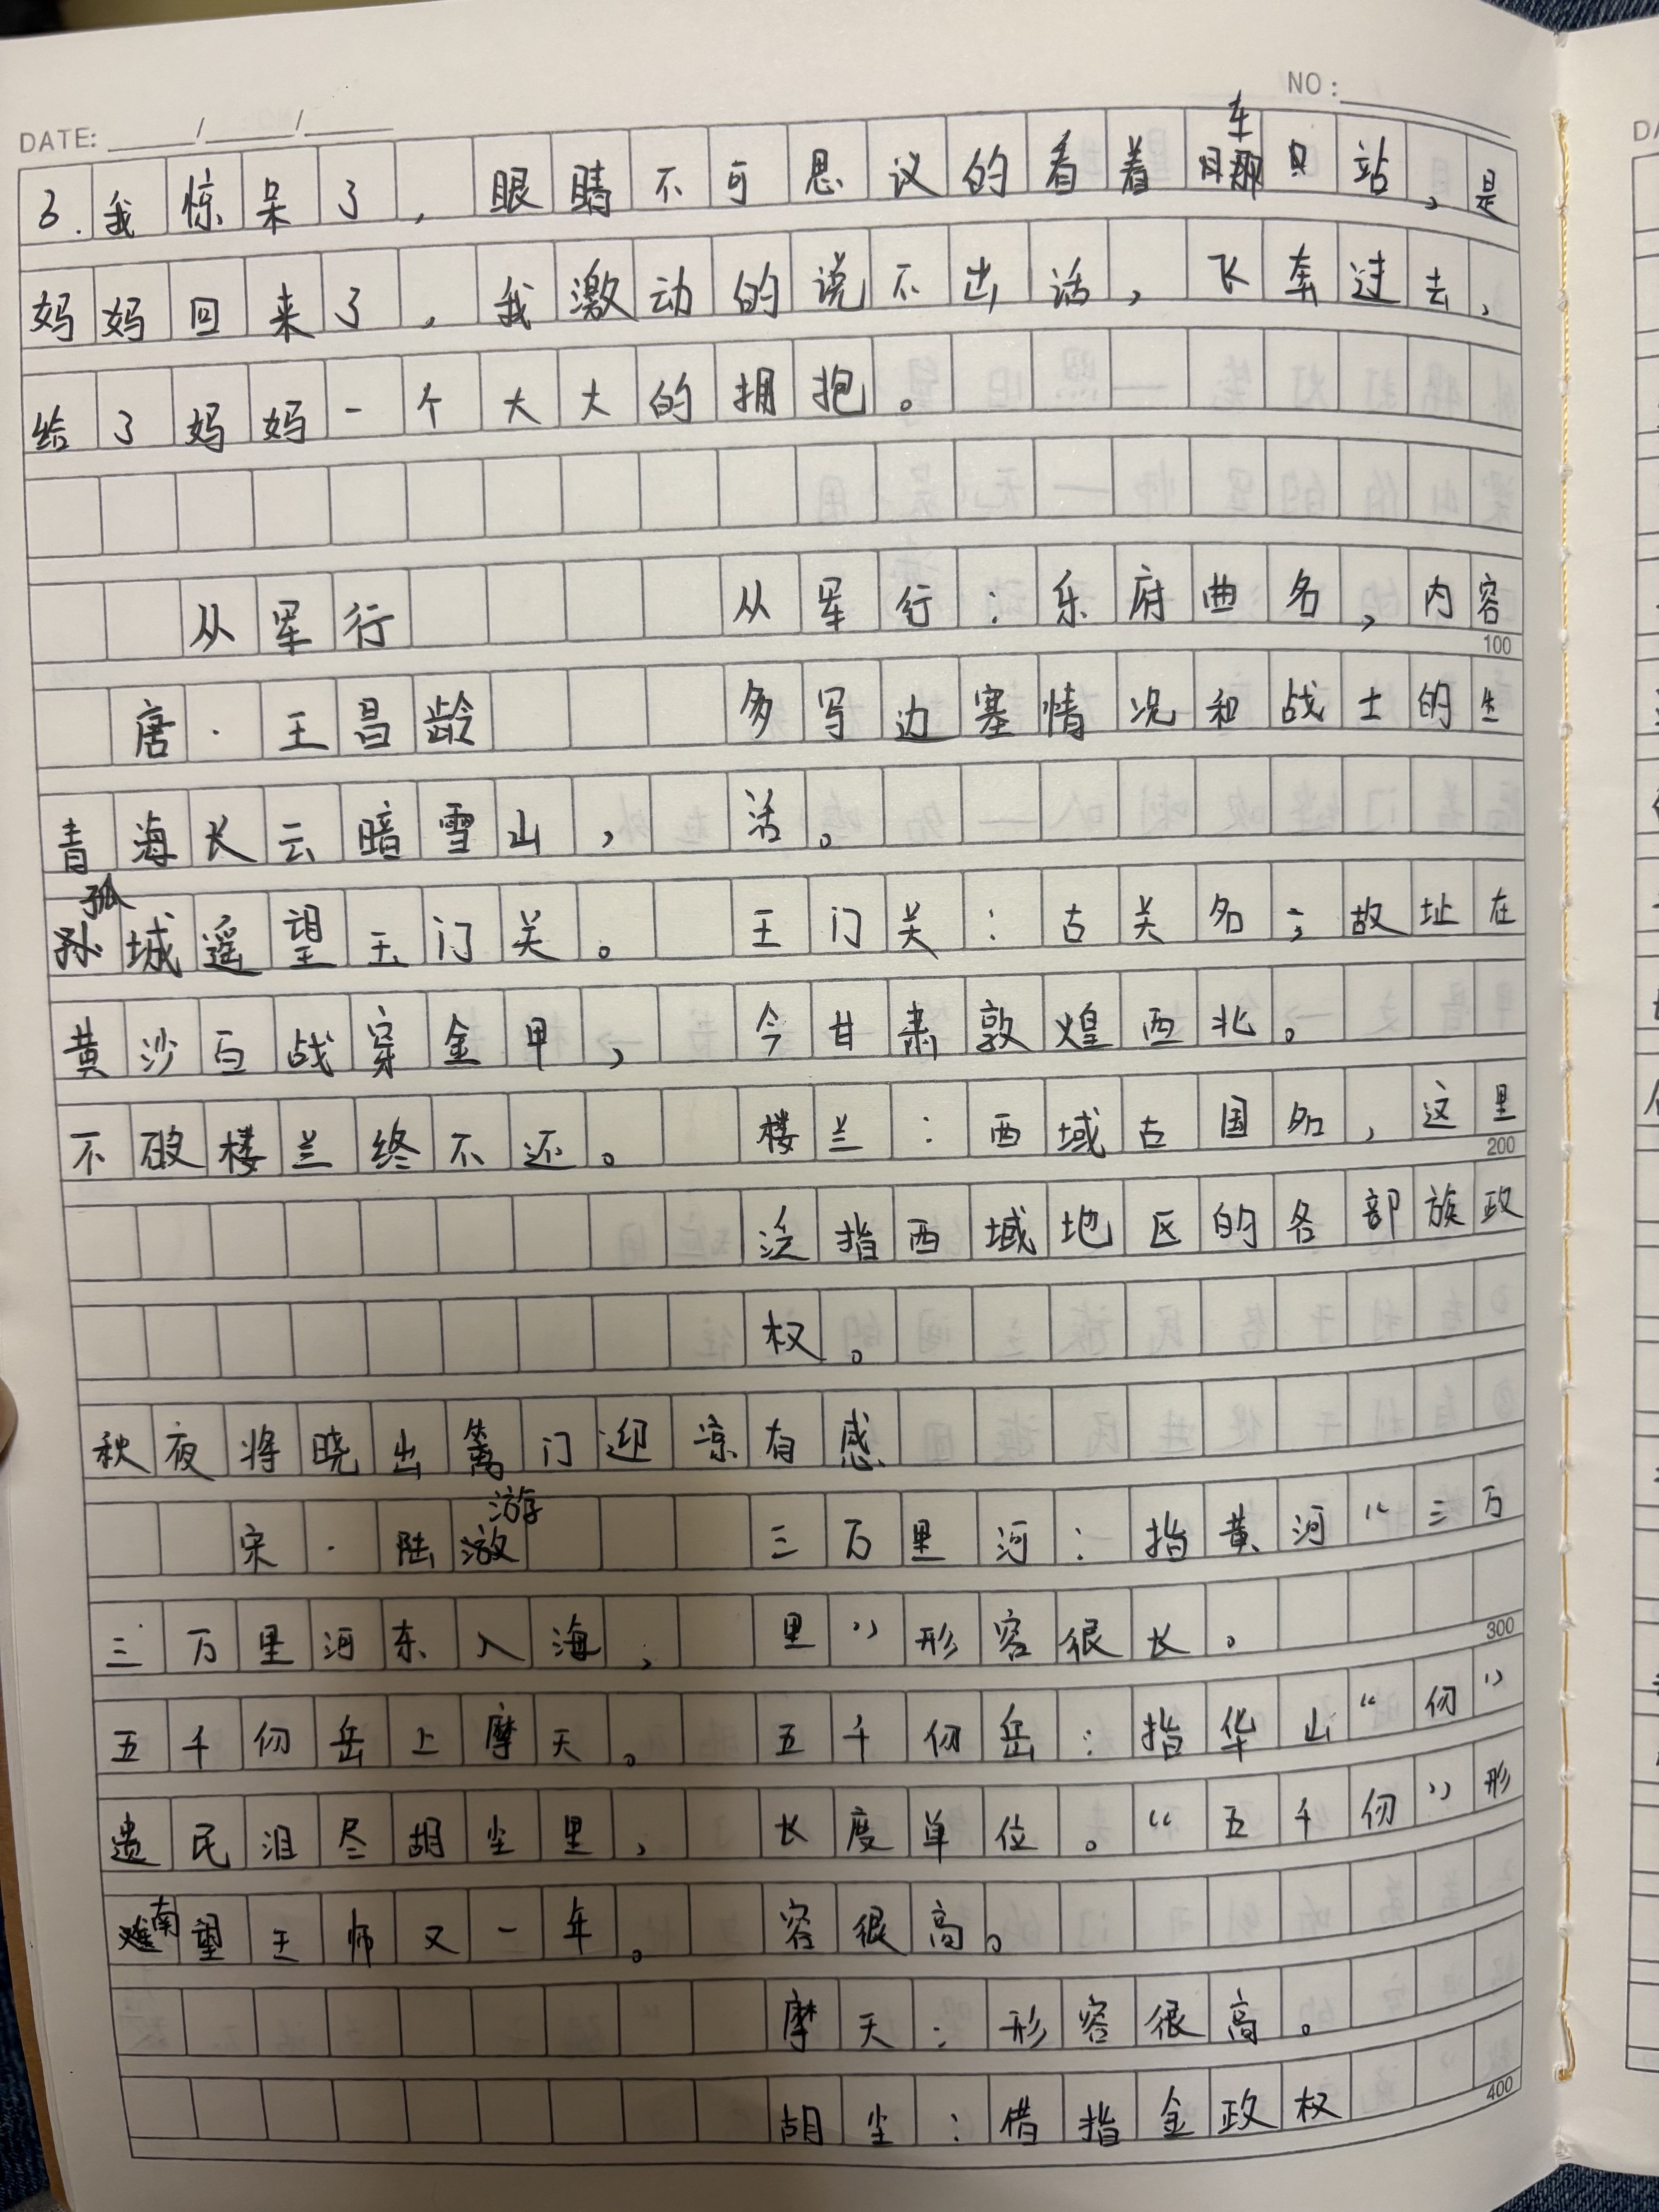 DATE: / /
NO:
3.我惊呆了，眼睛不可思议的看着车站，是
妈妈回来了，我激动的说不出话，飞奔过去，
给了妈妈一个大大的拥抱。
从军行 从军行：乐府曲名，内容
100
唐·王昌龄 多写边塞情况和战士的生
青海长云暗雪山， 活。
孤城遥望玉门关。 王门关：古关名；故址在
黄沙百战穿金甲， 今甘肃敦煌西北。
不破楼兰终不还。 楼兰：西域古国名，这里
200
泛指西域地区的各部族政
权。
秋夜将晓出篱门迎凉有感
宋·陆游 三万里河：指黄河“三万
三万里河东入海， 里”形容很长。
300
五千仞岳上摩天。 五千仞岳：指华山“仞”
遗民泪尽胡尘里， 长度单位。“五千仞”形
南望王师又一年。 容很高。
摩天：形容很高。
胡尘：借指金政权
400